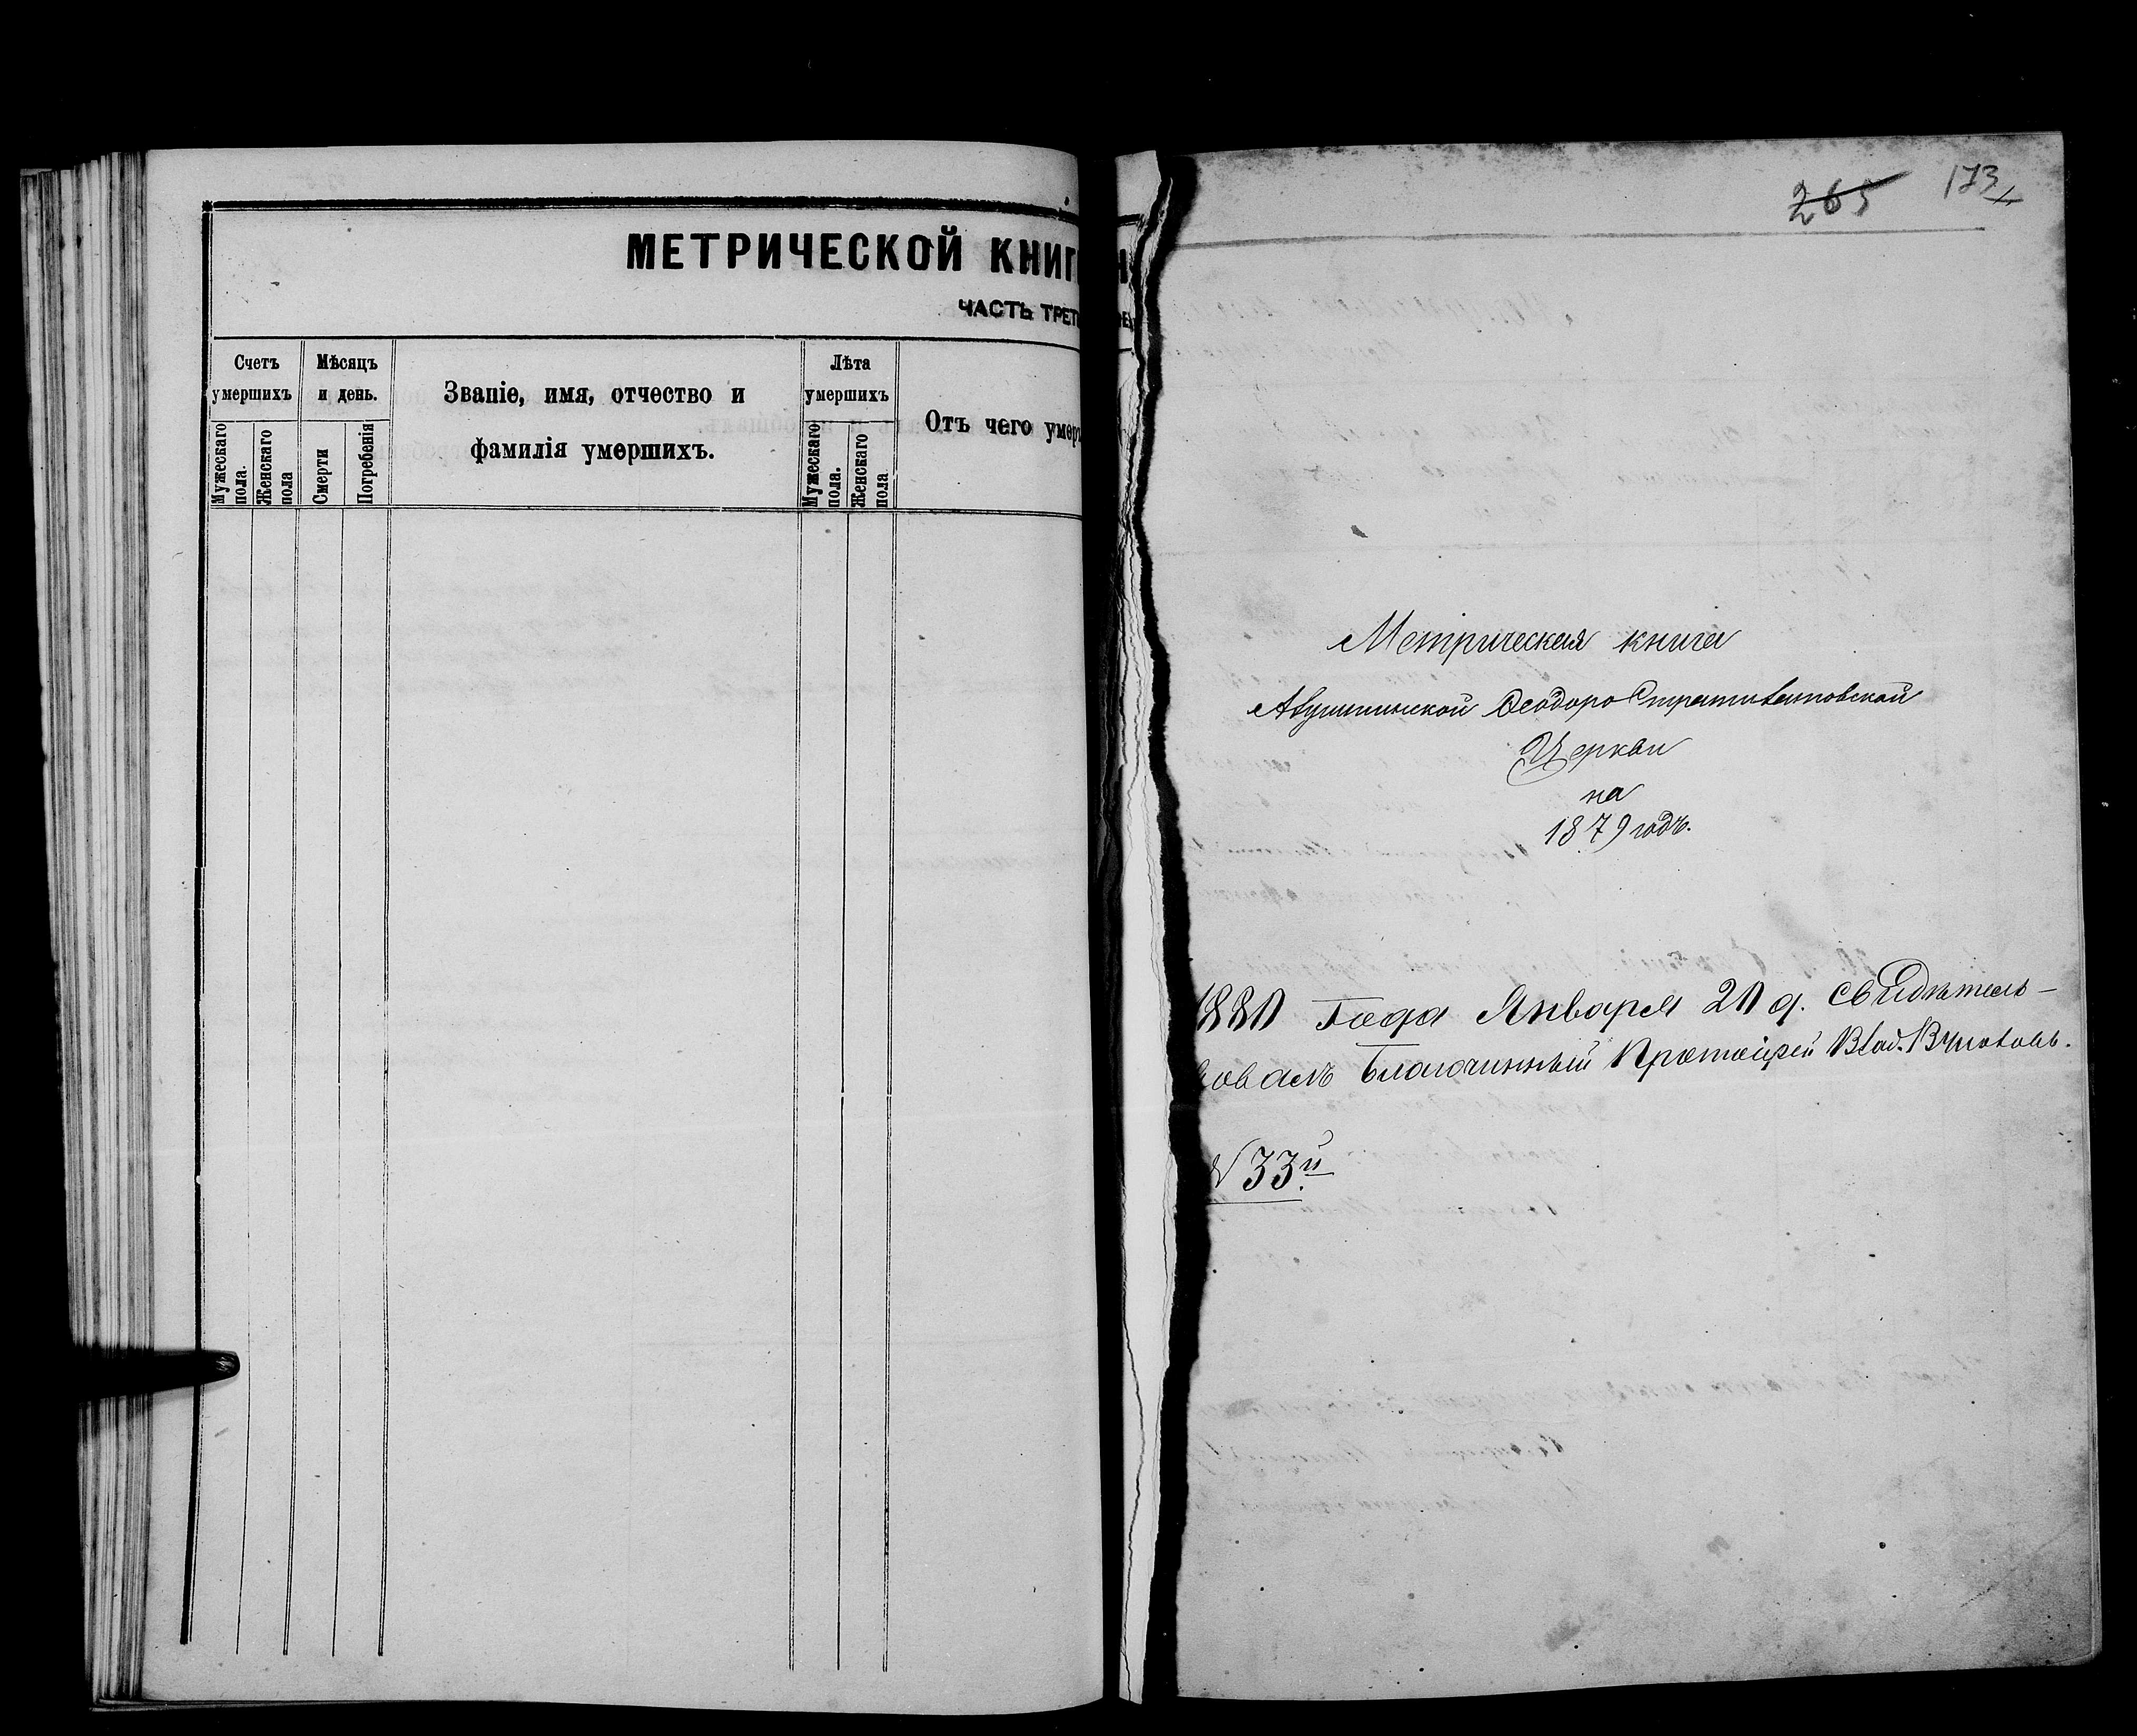 МЕТРИЧЕСКОЙ КНИГ
ЧАСТЬ ТРЕТ
Счетъ умершихъ
Мужескаго пола.
Женскаго пола
Мѣсяцъ и день.
Смерти
Погребенія
Званіе, имя, отчество и
фамилія умершихъ.
Лѣта умершихъ
Мужескаго пола.
Женскаго пола
Отъ чего умер
265 173
Метрическая книга
Ѳеодоро Стратилатовской
Церкви
на
1879 годъ.
1880 Года Января 20 д. свидѣтель-
вовалъ Благочинный Протоіерей Влад.
№ 33й